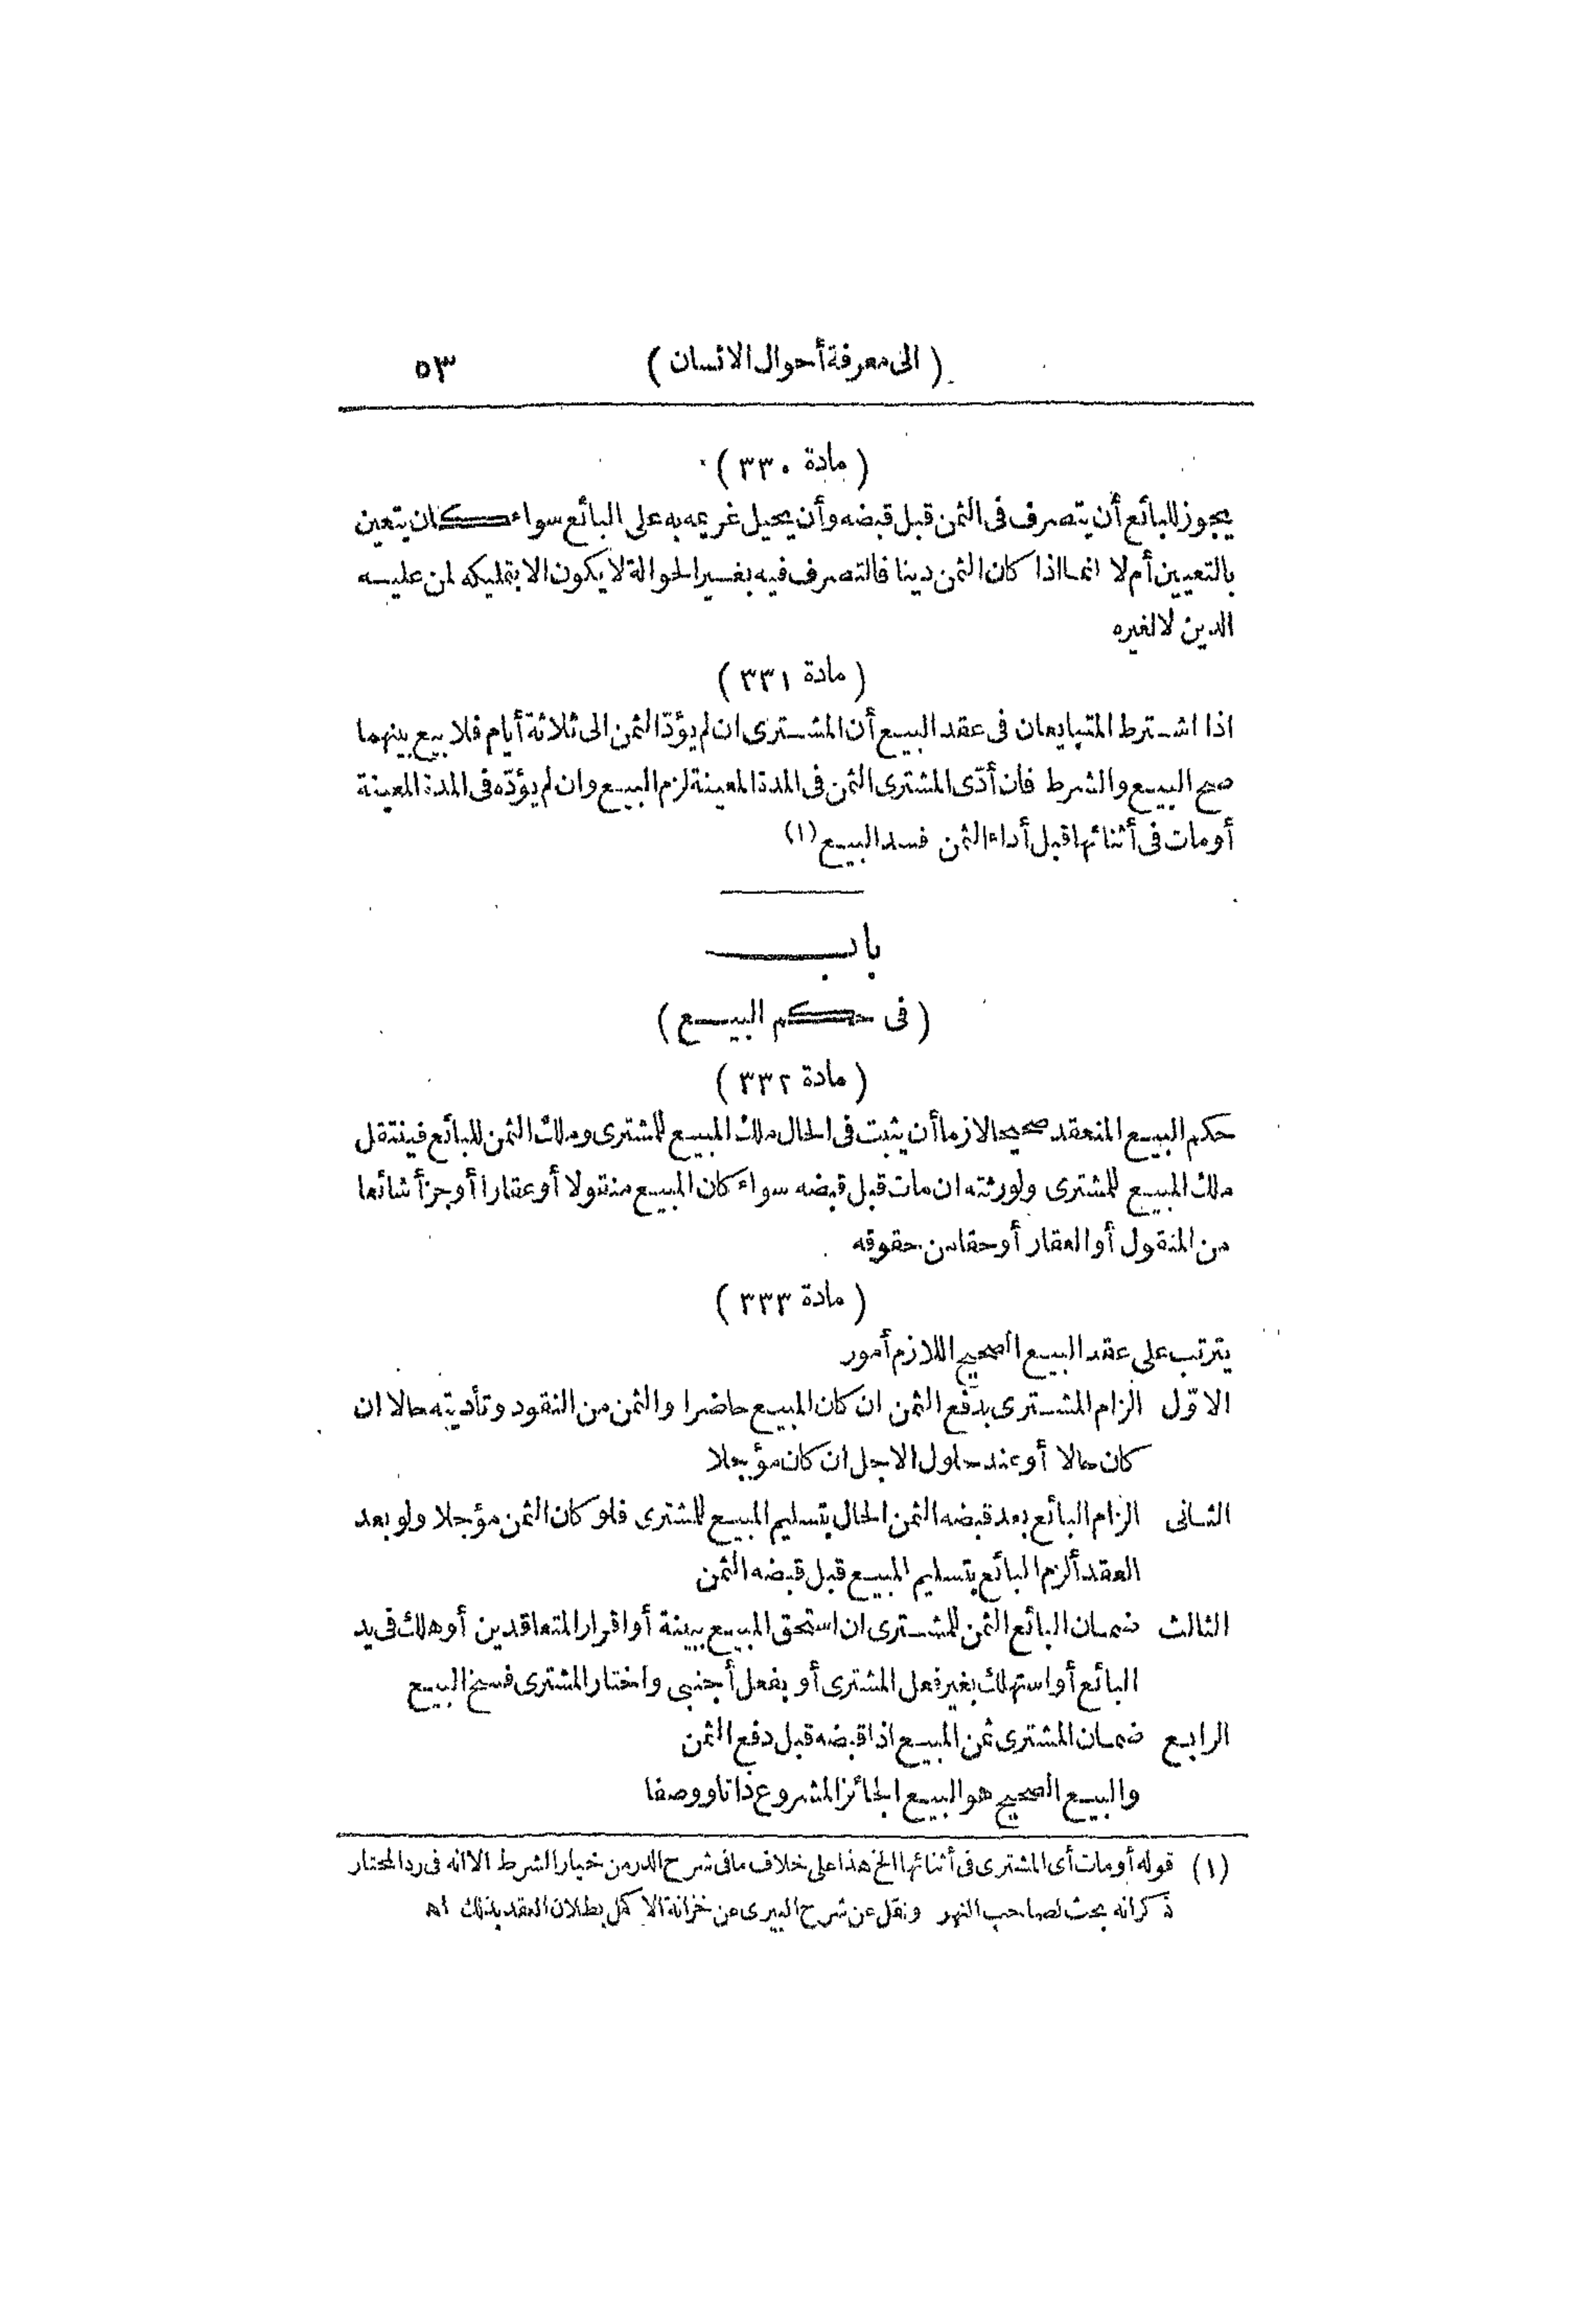 (الى معرفة أحوال الانسان) ٥٣
(مادة ٣٣٠)
يجوز للبائع أن يتصرف فى الثمن قبل قبضه وأن يحيل غريمه به على البائع سواء كان يتعين
بالتعيين أم لا انما اذا كان الثمن دينا فالتصرف فيه بغير الحوالة لا يكون الا بتمليكه لمن عليه
الدين لا لغيره
(مادة ٣٣١)
اذا اشترط المتبايعان فى عقد البيع أن المشترى ان لم يؤدّ الثمن الى ثلاثة أيام فلا بيع بينهما
صح البيع والشرط فان أدّى المشترى الثمن فى المدة المعينة لزم البيع وان لم يؤدّه فى المدة المعينة
أو مات فى أثنائها قبل أداء الثمن فسد البيع (١)
باب
(فى حكم البيع)
(مادة ٣٣٢)
حكم البيع المنعقد صحيحا لازما أن يثبت فى الحال ملك المبيع للمشترى وملك الثمن للبائع فينتقل
ملك المبيع للمشترى ولورثته ان مات قبل قبضه سواء كان المبيع منقولا أو عقارا أو جزأ شائعا
من المنقول أو العقار أو حقا من حقوقه
(مادة ٣٣٣)
يترتب على عقد البيع الصحيح اللازم أمور
الاوّل الزام المشترى بدفع الثمن ان كان المبيع حاضرا والثمن من النقود وتأديته حالا ان
كان حالا أو عند حلول الاجل ان كان مؤجلا
الثانى الزام البائع بعد قبضه الثمن الحال بتسليم المبيع للمشترى فلو كان الثمن مؤجلا ولو بعد
العقد ألزم البائع بتسليم المبيع قبل قبضه الثمن
الثالث ضمان البائع الثمن للمشترى ان استحق المبيع ببينة أو اقرار المتعاقدين أو هلك فى يد
البائع أو استهلك بغير فعل المشترى أو بفعل أجنبى واختار المشترى فسخ البيع
الرابع ضمان المشترى ثمن المبيع اذا قبضه قبل دفع الثمن
والبيع الصحيح هو البيع الجائز المشروع ذاتا ووصفا
(١) قوله أو مات أى المشترى فى أثنائها الخ هذا على خلاف ما فى شرح الدر من خيار الشرط الا انه فى رد المحتار
ذكر انه بحث لصاحب النهر ونقل عن شرح البيرى عن خزانة الاكمل بطلان العقد بذلك اه